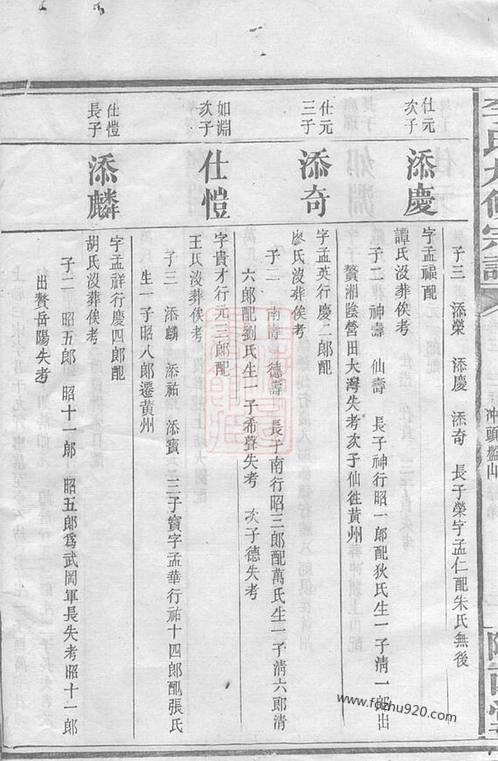 李氏六修宗譜
子三 添榮 添慶 添奇 長子榮字孟仁配朱氏無後
仕元次子
添慶
字孟禑配
譚氏沒葬俟考
子二 神壽 仙壽 長子神行昭一郎配狄氏生一子淸一郎出
贅湘陰營田大灣失考次子仙徃黃州
仕元三子
添奇
字孟英行慶二郎配
廖氏沒葬俟考
子二 南壽 德壽 長子南行昭三郎配萬氏生一子淸六郎淸
六郎配劉氏生一子希聲失考 次子德失考
如淵次子
仕愷
字貴才行元三郎配
王氏沒葬俟考
子三 添麟 添祐 添賓 三子賓字孟華行祐十四郎配張氏
生一子昭八郎遷黃州
仕愷長子
添麟
字孟祥行慶四郎配
胡氏沒葬俟考
子二 昭五郎 昭十一郎 昭五郎爲武岡軍長失考昭十一郎
出贅岳陽失考
www.fozhu920.com